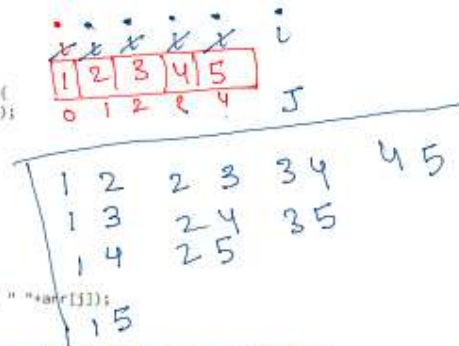 i
1 2 3 4 5
{
0 1 2 4
);
J
1 2 2 3 3 4 4 5
1 3 2 4 3 5
1 4 2 5
" "+arr[j]);
1 5